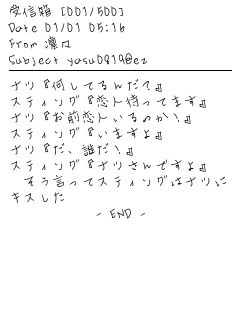 受信箱 [001/500]
Date 01/01 05:16
From 凛々
Subject yasu0819@ez
ナツ『何してるんだ?』
スティング『恋人待ってます』
ナツ『お前恋人いるのか!』
スティング『いますよ』
ナツ『だ、誰だ!』
スティング『ナツさんですよ』
そう言ってスティングはナツに
キスした
- END -